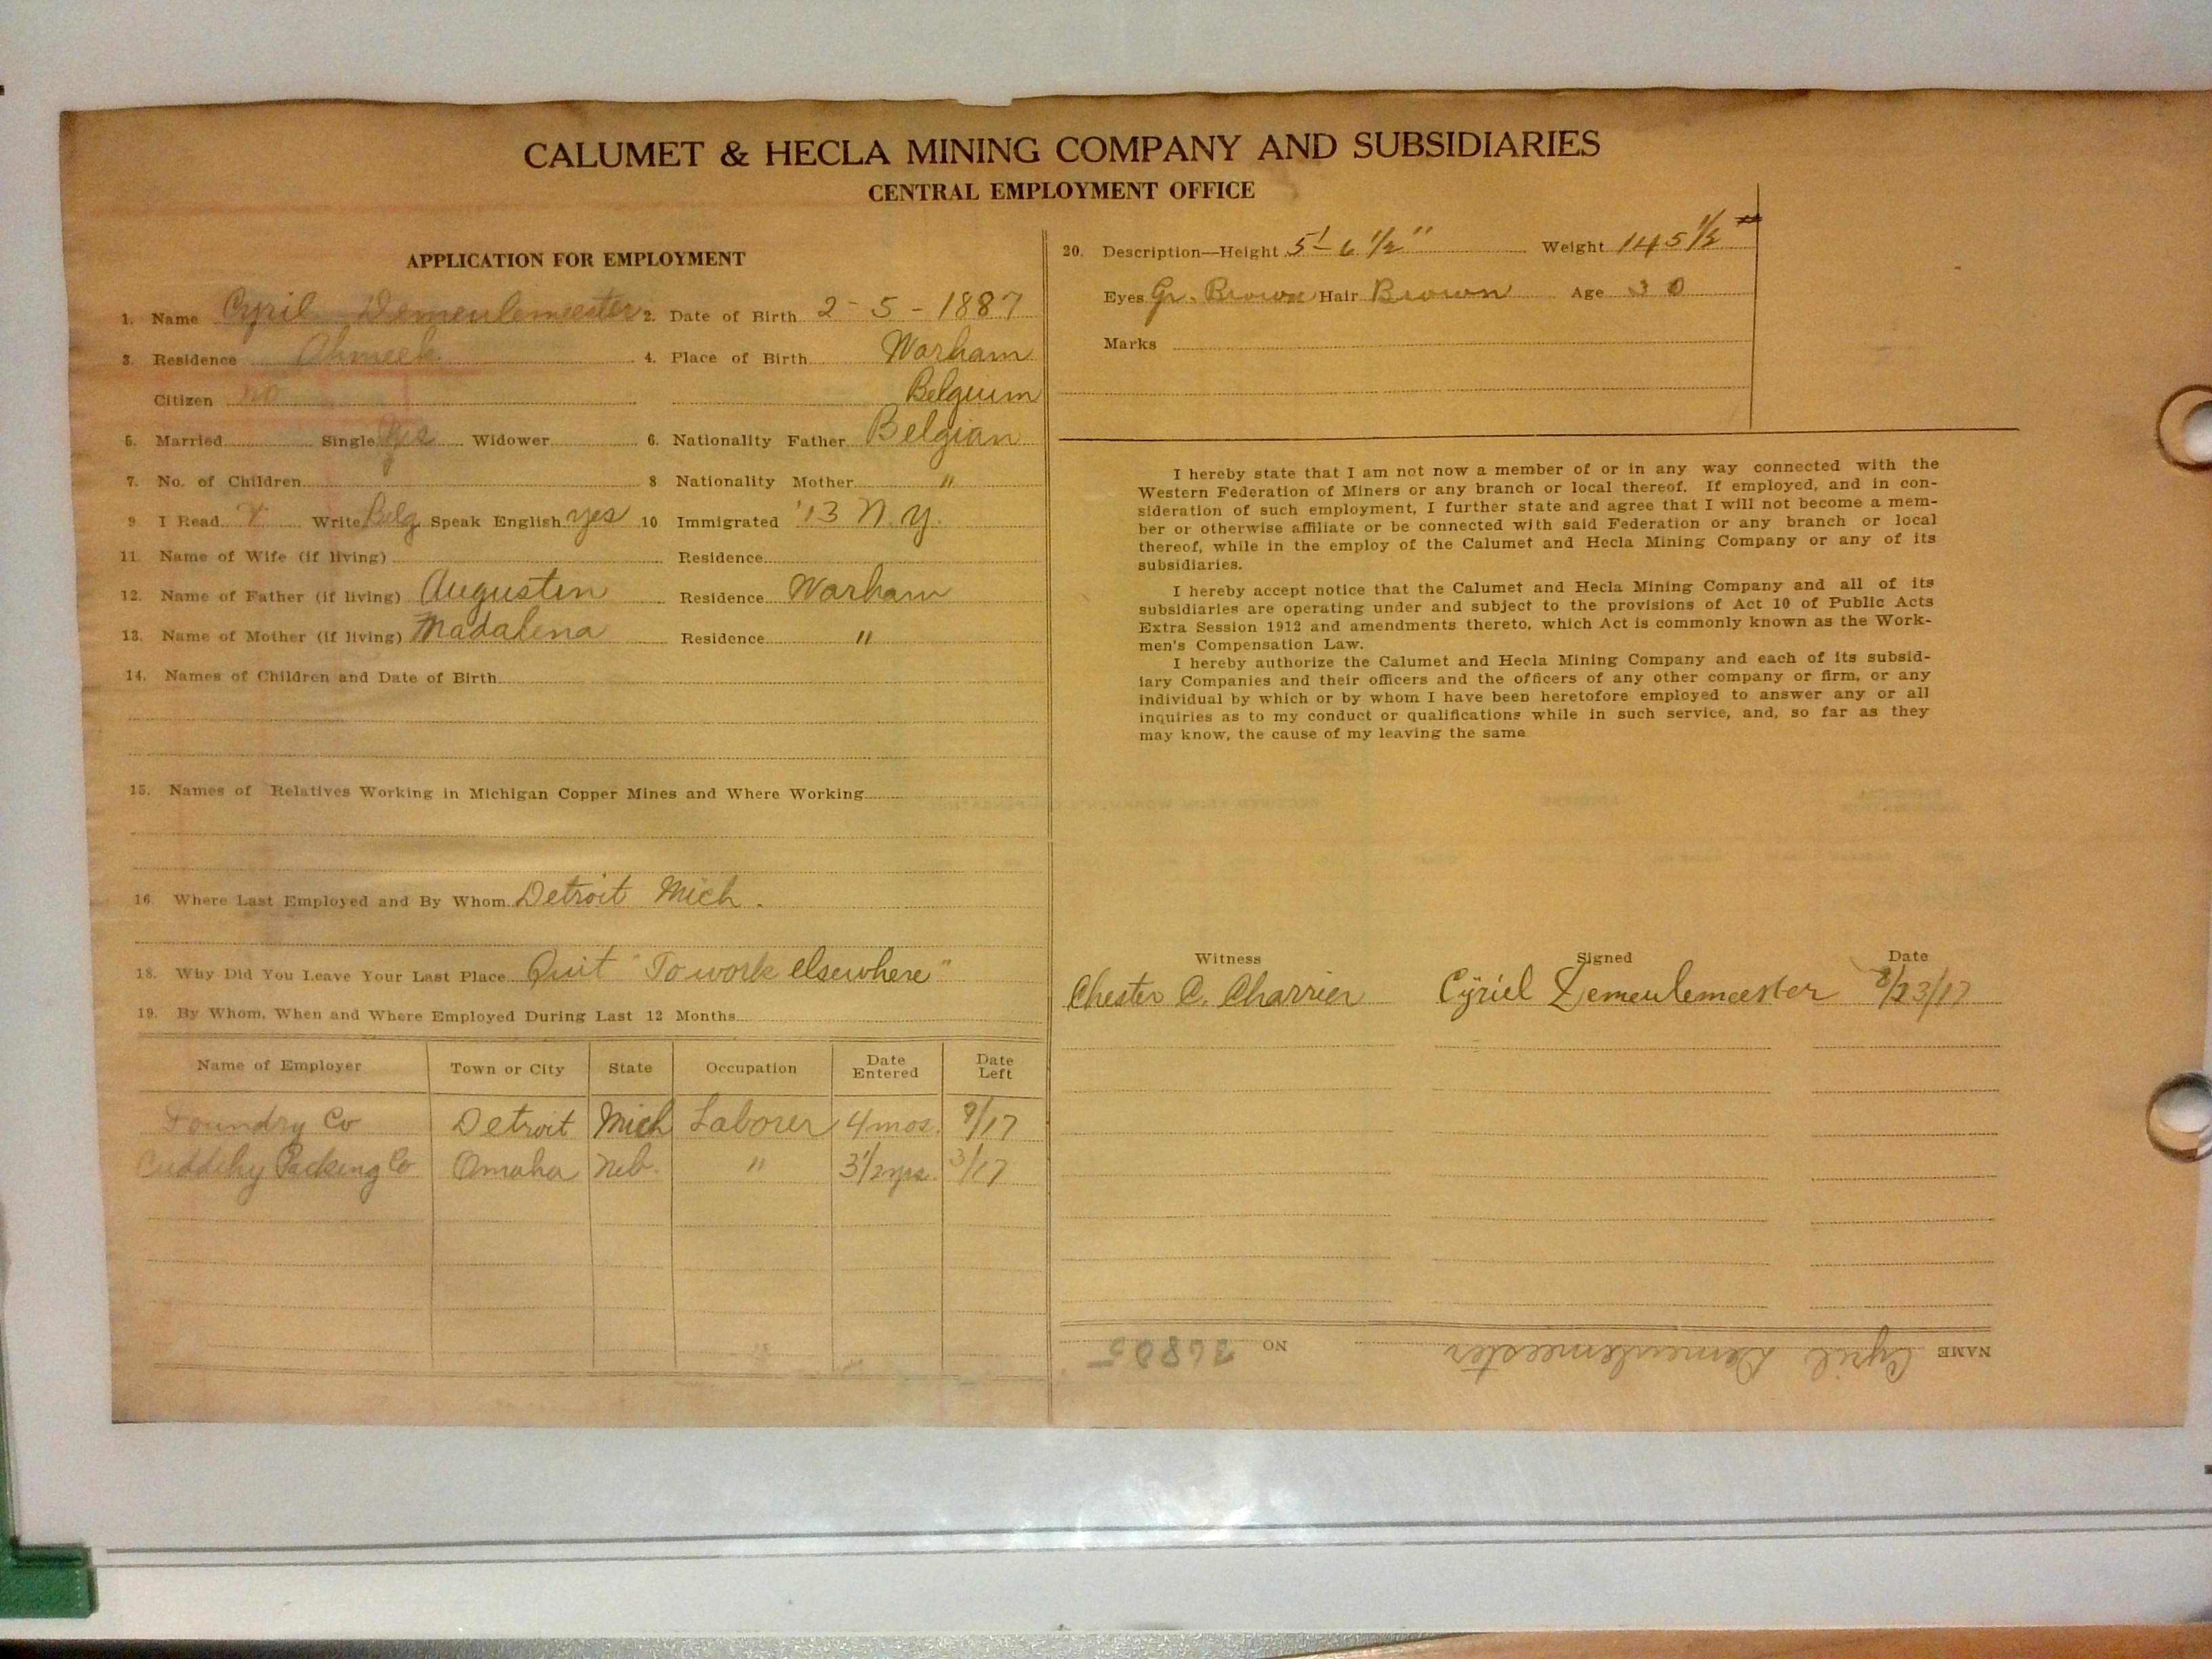 CALUMET & HECLA MINING COMPANY AND SUBSIDIARIES
CENTRAL EMPLOYMENT OFFICE
APPLICATION FOR EMPLOYMENT
1. Name Cyril Demeulemeester 2. Date of Birth 2-5-1887
3. Residence Ahmeek 4. Place of Birth Warham
Citizen no Belgium
5. Married Single yes Widower 6. Nationality Father Belgian
7. No. of Children 8 Nationality Mother "
9 I Read + Write Belg. Speak English yes 10 Immigrated '13 N.Y.
11. Name of Wife (if living) Residence
12. Name of Father (if living) Augustin Residence Warham
13. Name of Mother (if living) Madalena Residence "
14. Names of Children and Date of Birth
15. Names of Relatives Working in Michigan Copper Mines and Where Working
16. Where Last Employed and By Whom Detroit Mich.
18. Why Did You Leave Your Last Place Quit "To work elsewhere"
19. By Whom, When and Where Employed During Last 12 Months
Name of Employer Town or City State Occupation Date Entered Date Left
Foundry Co Detroit Mich Laborer 4 mos. 8/17
Cuddihy Packing Co Omaha Neb. " 3 1/2 yrs. 3/17
20. Description—Height 5'-6 1/2" Weight 145 1/2 #
Eyes Gr. Brown Hair Brown Age 30
Marks
I hereby state that I am not now a member of or in any way connected with the
Western Federation of Miners or any branch or local thereof. If employed, and in con-
sideration of such employment, I further state and agree that I will not become a mem-
ber or otherwise affiliate or be connected with said Federation or any branch or local
thereof, while in the employ of the Calumet and Hecla Mining Company or any of its
subsidiaries.
I hereby accept notice that the Calumet and Hecla Mining Company and all of its
subsidiaries are operating under and subject to the provisions of Act 10 of Public Acts
Extra Session 1912 and amendments thereto, which Act is commonly known as the Work-
men's Compensation Law.
I hereby authorize the Calumet and Hecla Mining Company and each of its subsid-
iary Companies and their officers and the officers of any other company or firm, or any
individual by which or by whom I have been heretofore employed to answer any or all
inquiries as to my conduct or qualifications while in such service, and, so far as they
may know, the cause of my leaving the same
Witness Signed Date
Chester C. Charrier Cyriel Demeulemeester 8/23/17
NAME Cyril Demeulemeester NO 36805